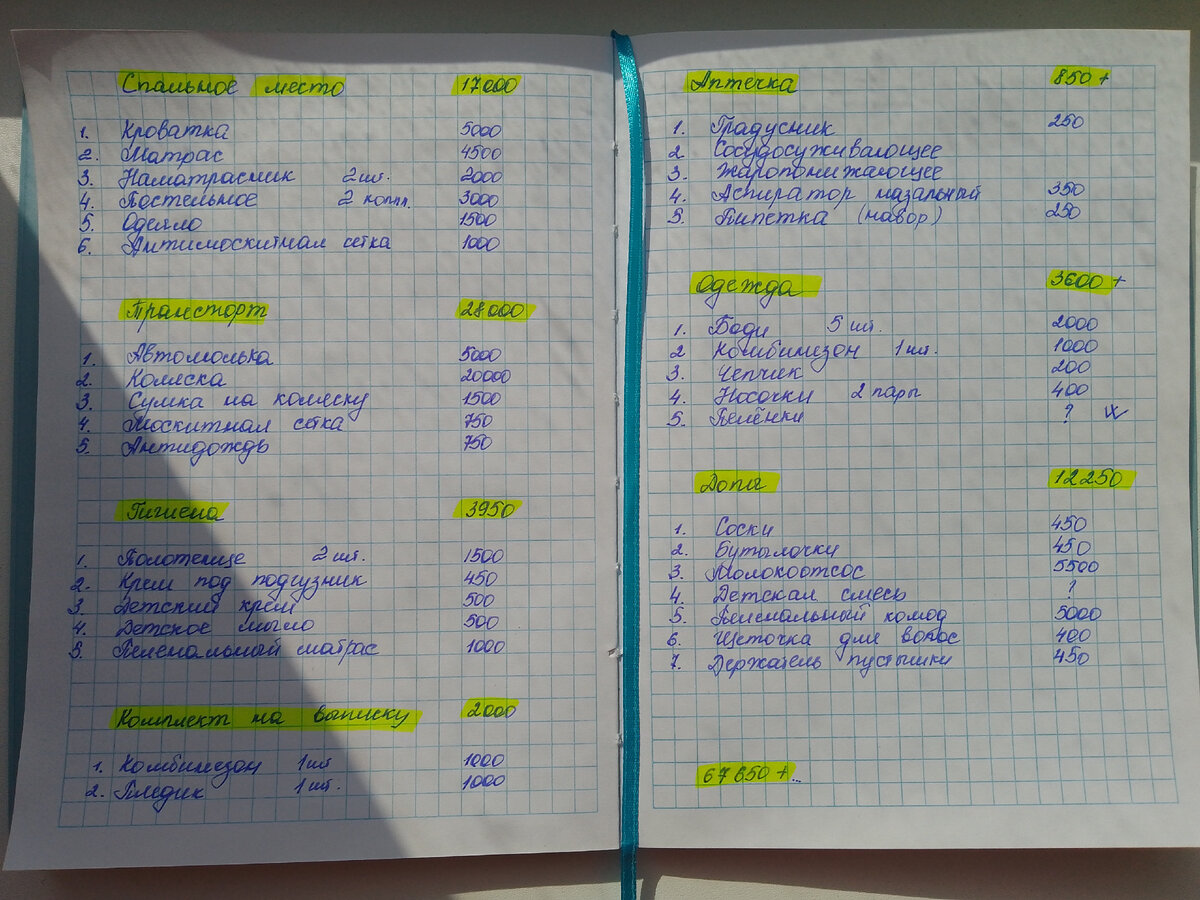 Спальное место 17000
1. Кроватка 5000
2. Матрас 4500
3. Наматрасник 2 шт. 2000
4. Постельное 2 компл. 3000
5. Одеяло 1500
6. Антимоскитная сетка 1000
Транспорт 28000
1. Автолюлька 5000
2. Коляска 20000
3. Сумка на коляску 1500
4. Москитная сетка 750
5. Антидождь 750
Гигиена 3950
1. Полотенце 2 шт. 1500
2. Крем под подгузник 450
3. Детский крем 500
4. Детское мыло 500
5. Пеленальный матрас 1000
Комплект на выписку 2000
1. Комбинезон 1 шт 1000
2. Пледик 1 шт. 1000
Аптечка 850+
1. Градусник 250
2 Сосудосуживающее
3. Жаропонижающее
4. Аспиратор назальный 350
5. Пипетка (набор) 250
Одежда 3600+
1. Боди 5 шт. 2000
2 Комбинезон 1 шт. 1000
3. Чепчик 200
4. Носочки 2 пары 400
5. Пелёнки ?
Допы 12250
1. Соски 450
2. Бутылочки 450
3. Молокоотсос 5500
4. Детская смесь ?
5. Пеленальный комод 5000
6. Щеточка для волос 400
7. Держатель пустышки 450
67650+...